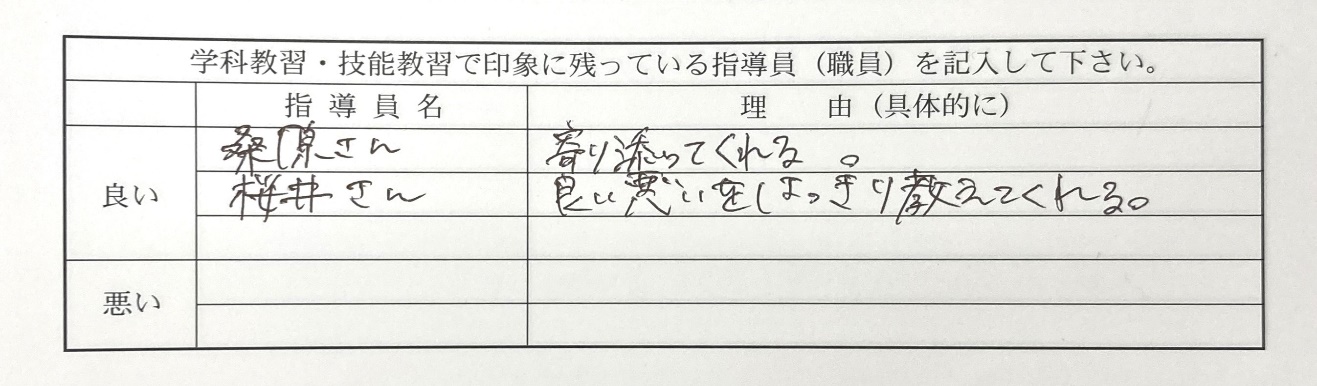 学科教習・技能教習で印象に残っている指導員（職員）を記入して下さい。
指導員名 理由（具体的に）
良い
桑原さん 寄り添ってくれる。
桜井さん 良い悪いをはっきり教えてくれる。
悪い